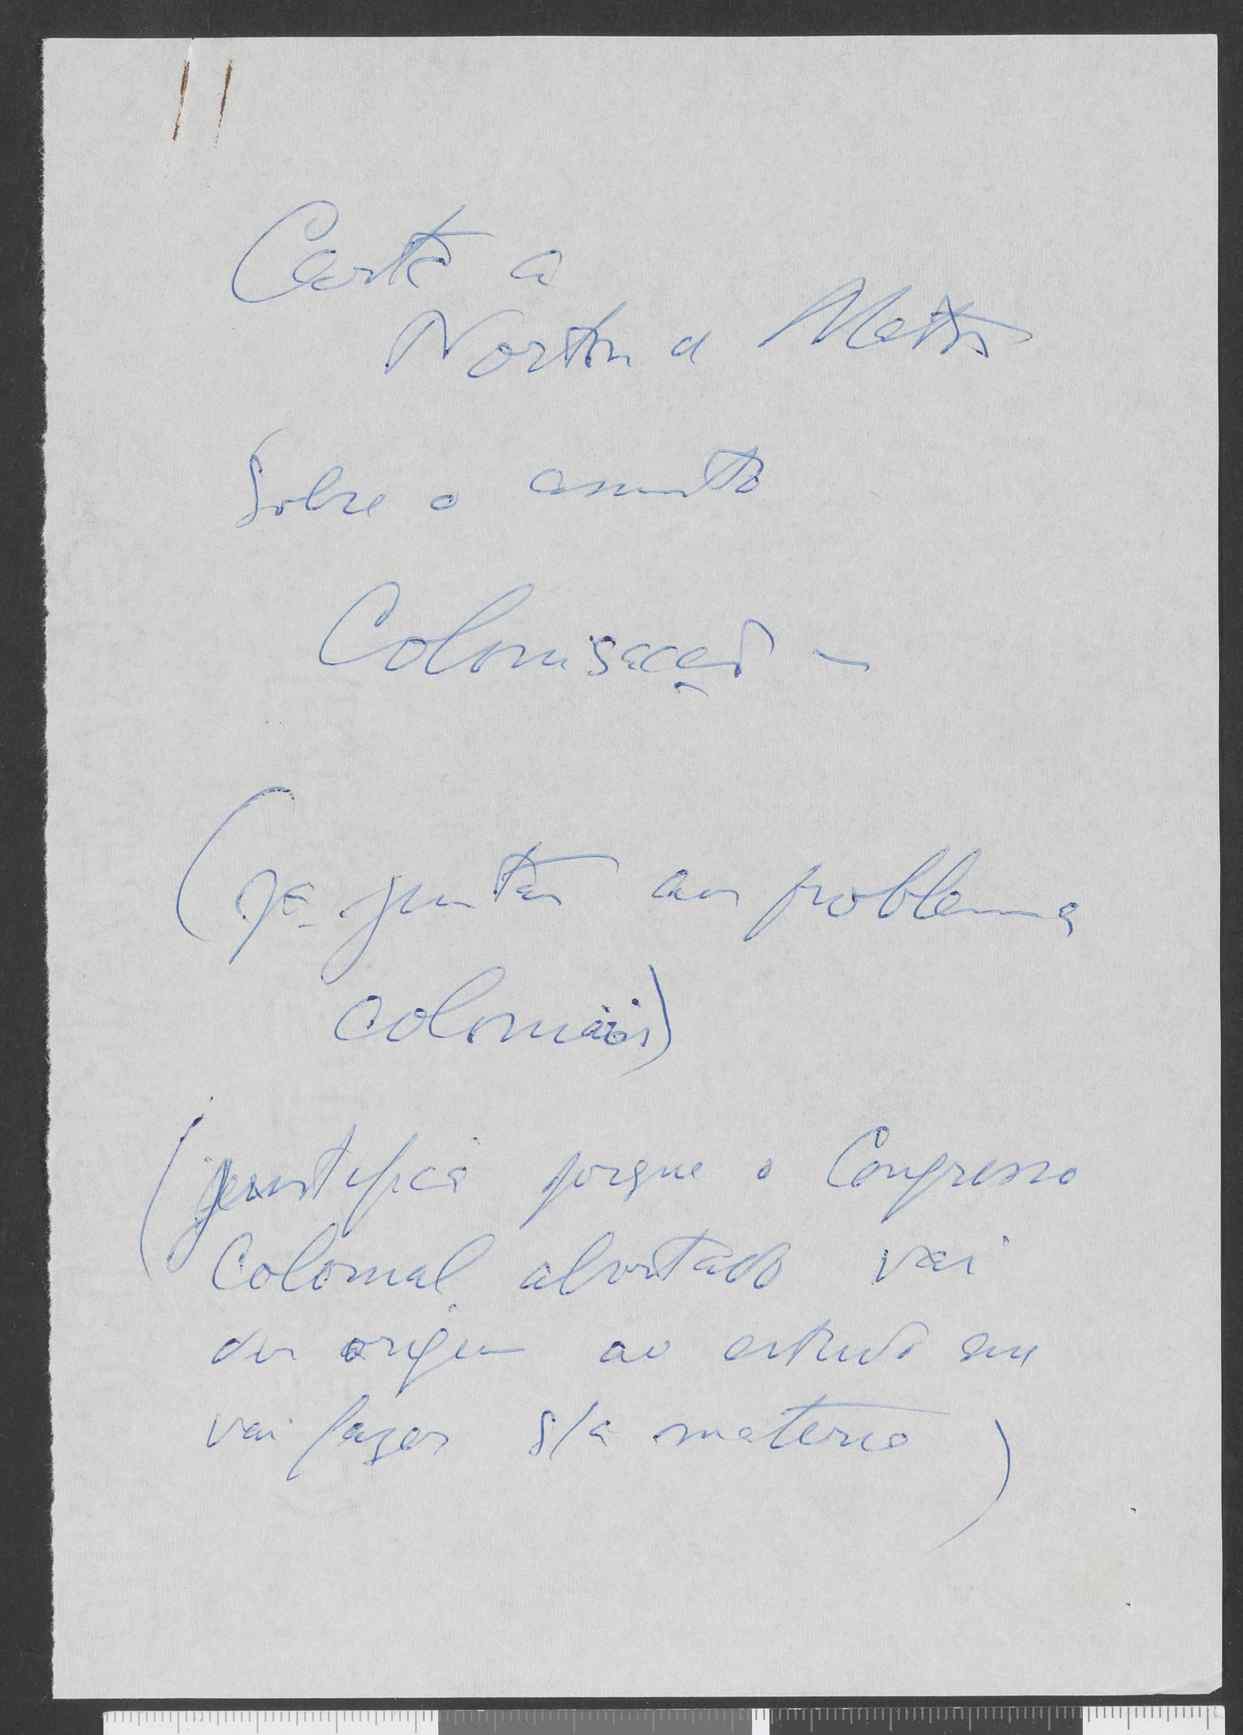 Carta a
Norton de Mattos
Sobre o assunto
Colonisação —
(pa juntar aos problemas
coloniais)
(justifica porque o Congresso
Colonial abortado vai
dar origem ao estudo que
vai fazer s/a materia)